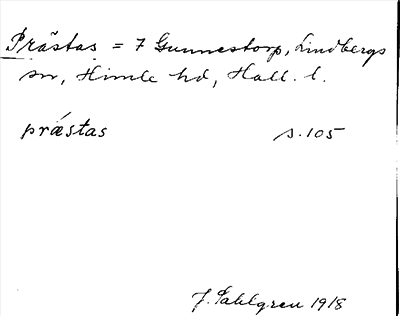 Prästas = 7 Gunnestorp, Lindbergs
sn, Himle hd, Hall. l.
præ´stas s. 105
J. Sahlgren 1918